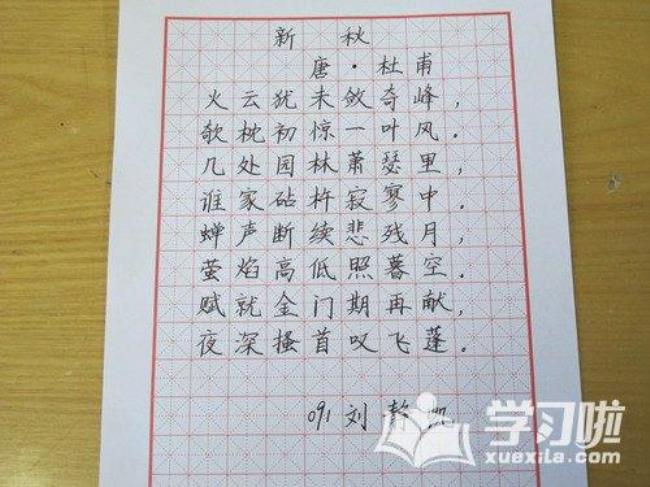 新 秋
唐·杜甫
火云犹未敛奇峰，
欹枕初惊一叶风．
几处园林萧瑟里，
谁家砧杵寂寥中．
蝉声断续悲残月，
萤焰高低照暮空．
赋就金门期再献，
夜深搔首叹飞蓬．
091 刘静
学习啦
xuexila.com